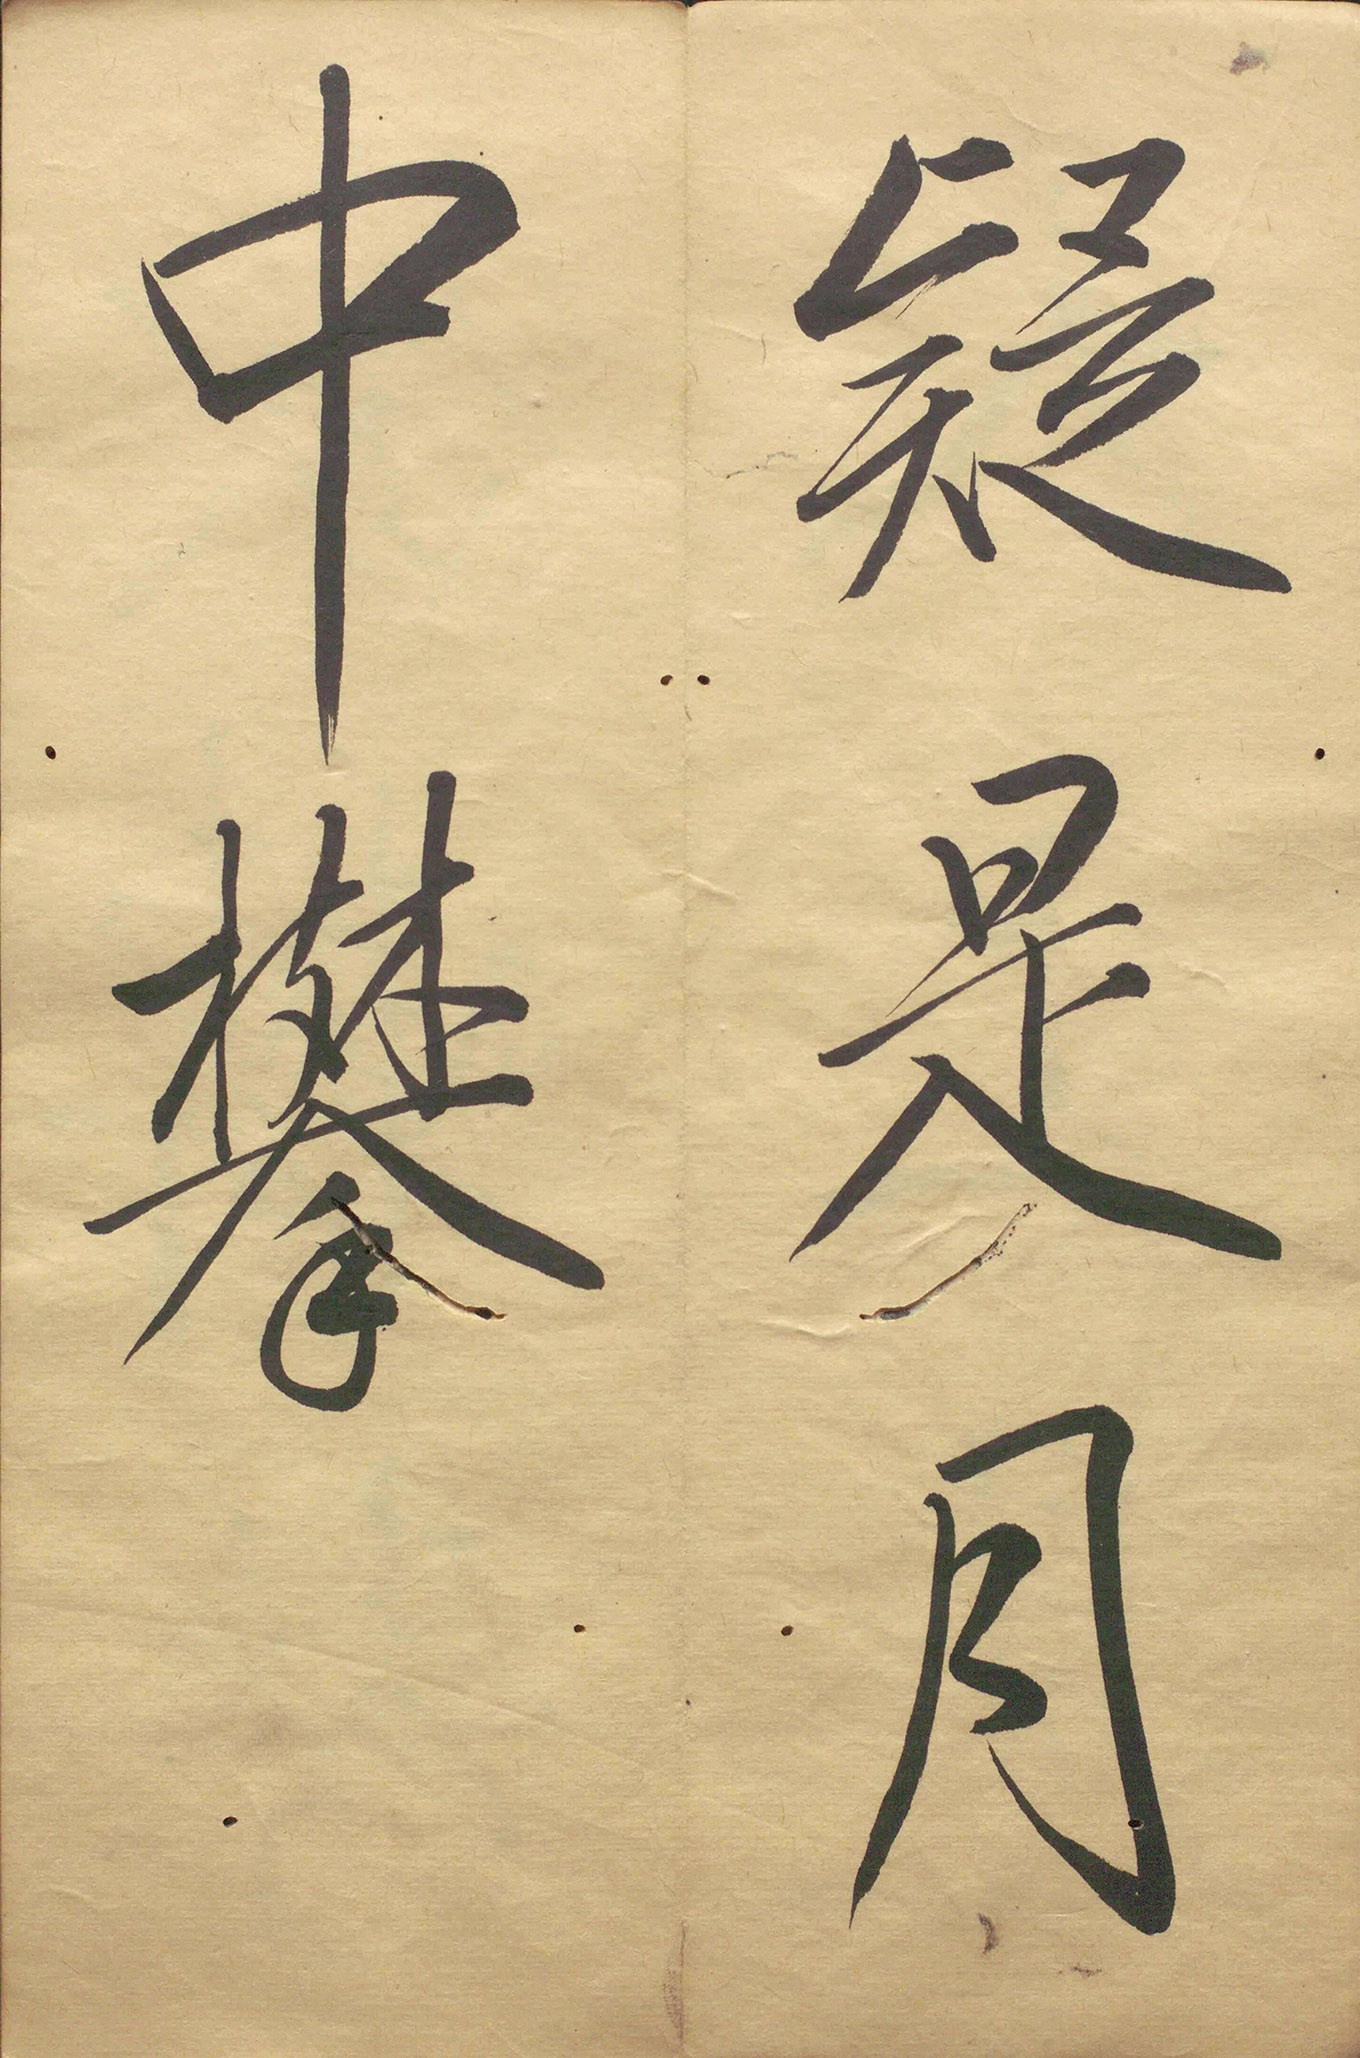 疑是月
中攀